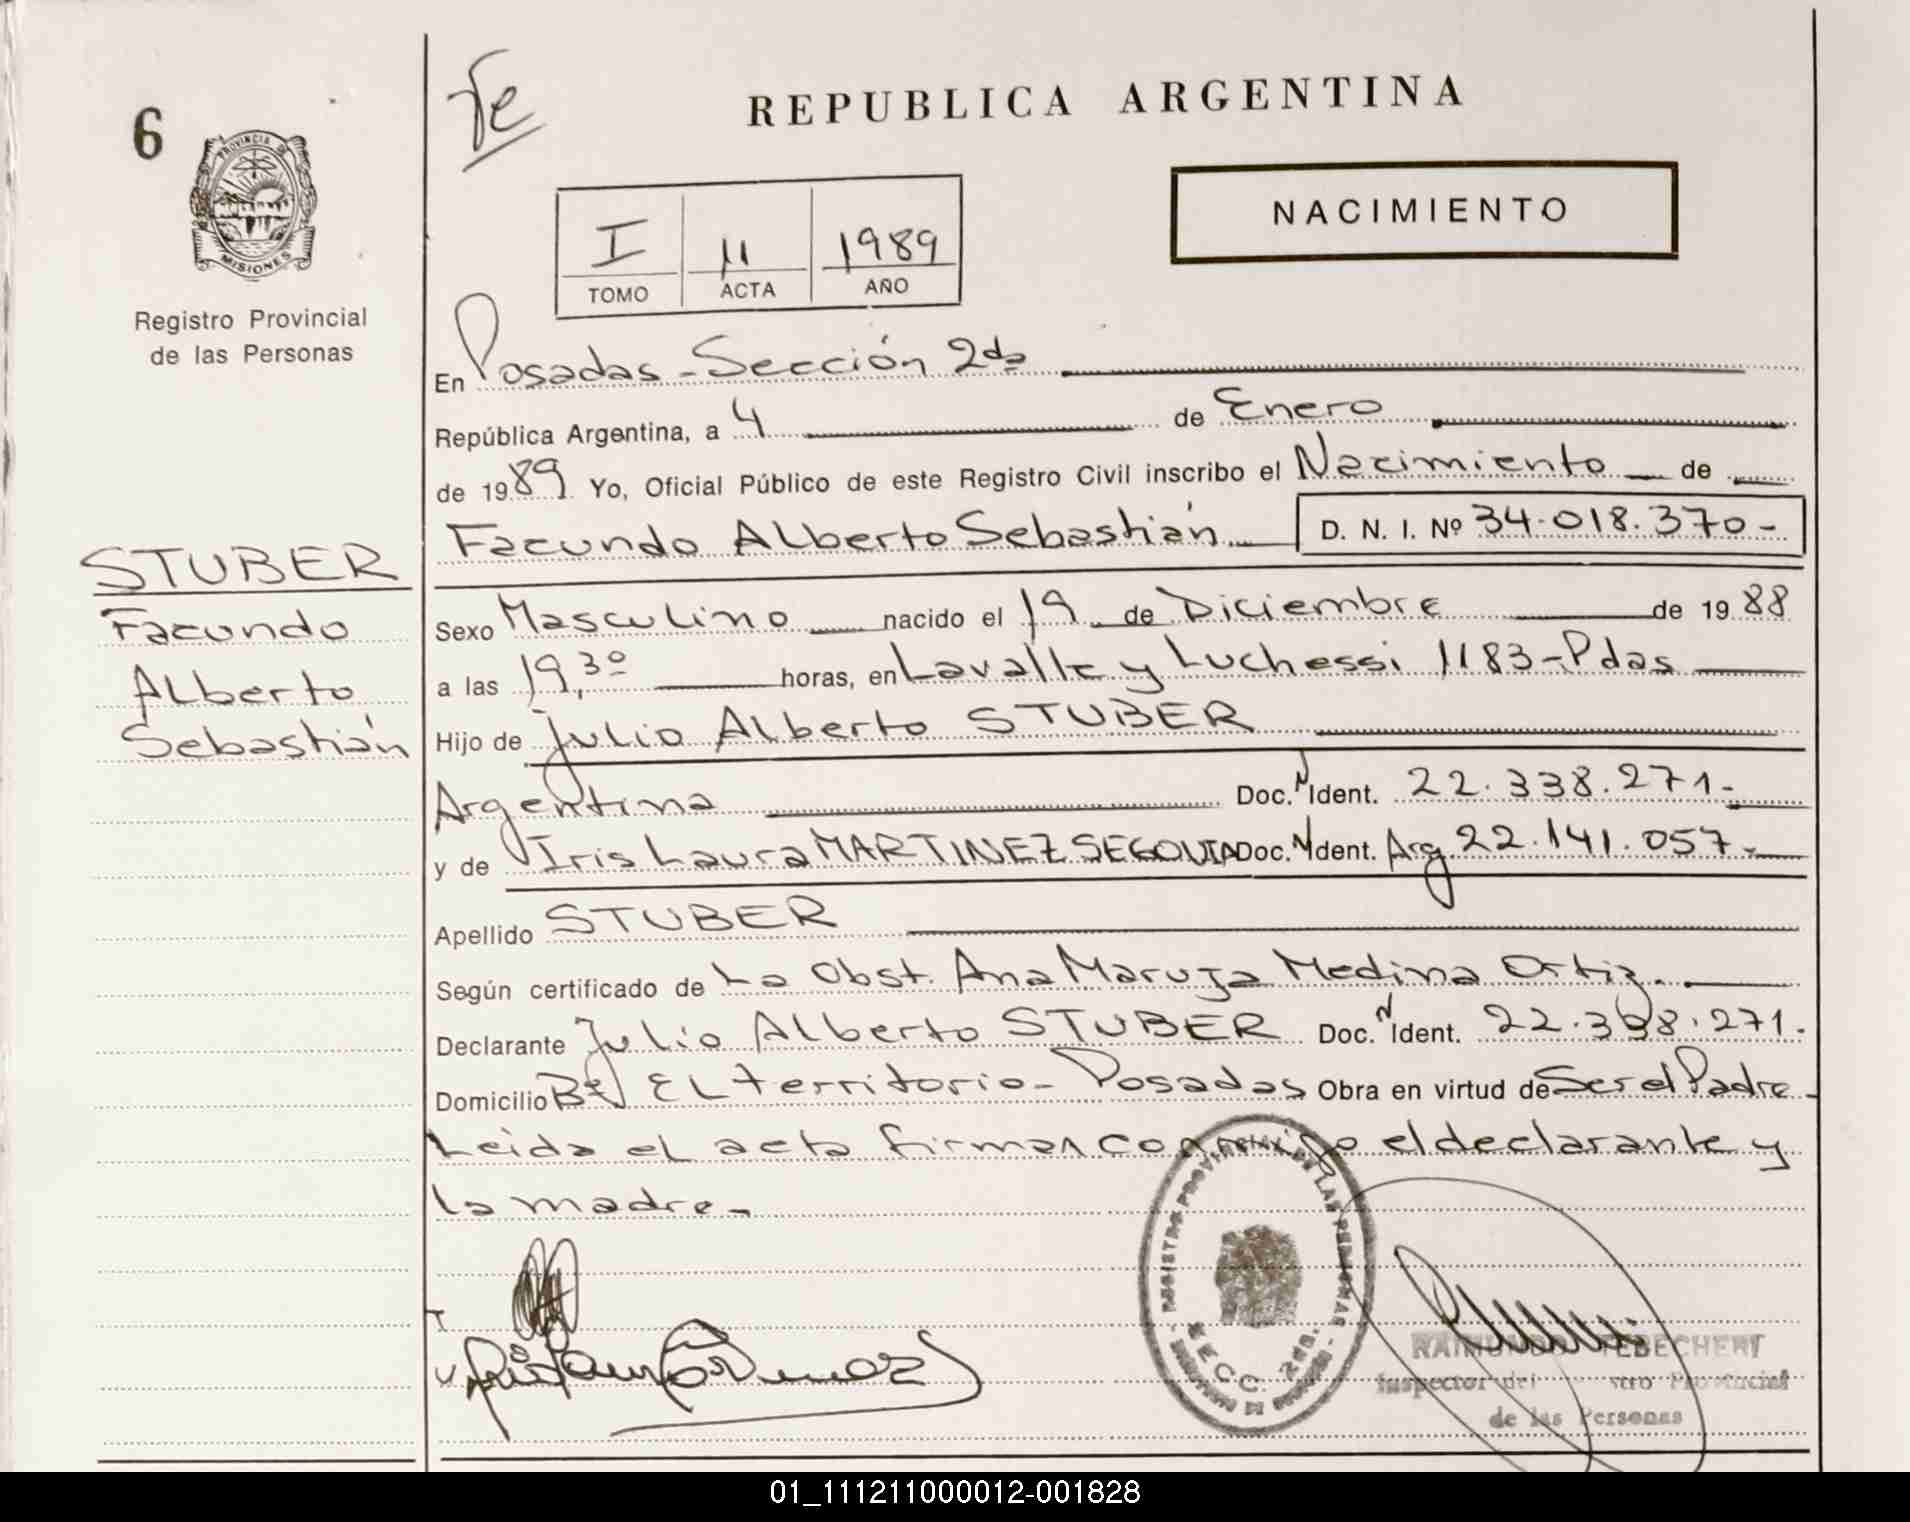 6
PROVINCIA DE
MISIONES
Registro Provincial
de las Personas
STUBER
Facundo
Alberto
Sebastián
REPUBLICA ARGENTINA
NACIMIENTO
I 11 1989
TOMO ACTA AÑO
En Posadas - Sección 2da
República Argentina, a 4 de Enero
de 1989 Yo, Oficial Público de este Registro Civil inscribo el Nacimiento de
Facundo Alberto Sebastián D. N. I. Nº 34.018.370-
Sexo Masculino nacido el 19 de Diciembre de 1988
a las 19,30 horas, en Lavalle y Luchessi 1183-Pdas
Hijo de Julio Alberto STUBER
Argentina Doc. N Ident. 22.338.271-
y de Iris Laura MARTINEZ SEGOVIA Doc. N Ident. Arg 22.141.057-
Apellido STUBER
Según certificado de La Obst. Ana Maruja Medina Ortiz.
Declarante Julio Alberto STUBER Doc. N Ident. 22.338.271.
Domicilio Bº EL territorio - Posadas Obra en virtud de Ser el Padre.
Leida el acta firman conmigo el declarante y
la madre -
REGISTRO PROVINCIAL DE LAS PERSONAS
SECC. 2da.
RAIMUNDO TEBECHERI
Inspector del Provincial
de las Personas
01_111211000012-001828